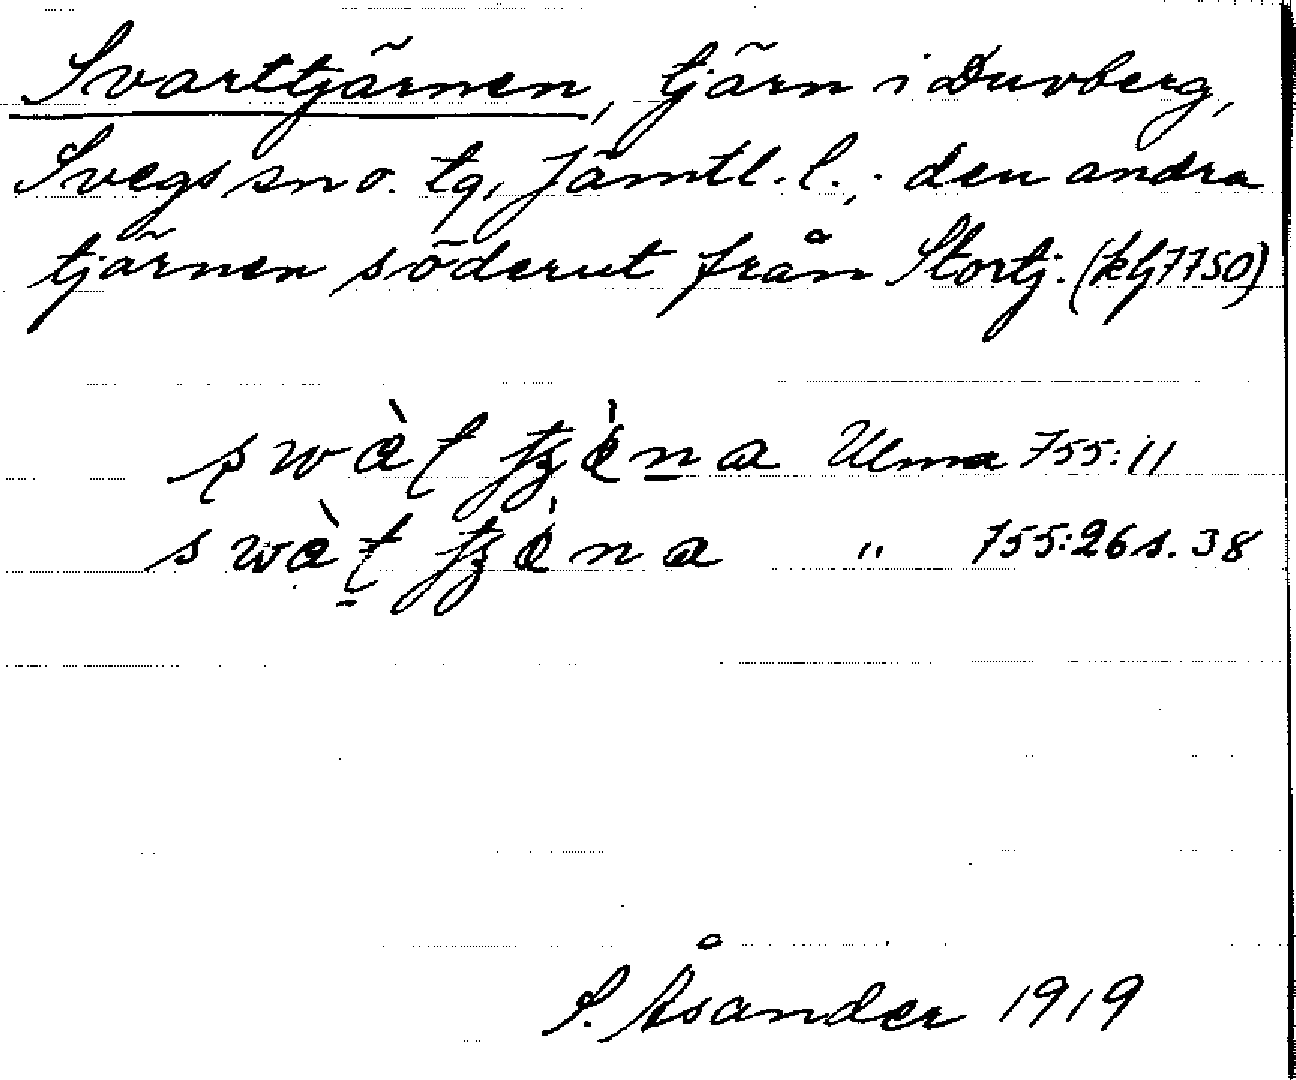 Svarttjärnen, tjärn i Duvberg,
Svegs sn o. tg, Jämtl. l., den andra
tjärnen söderut från Stortj. (kg7750)
Ulma 755:11
" 755:26 s. 38
S. Åsander 1919